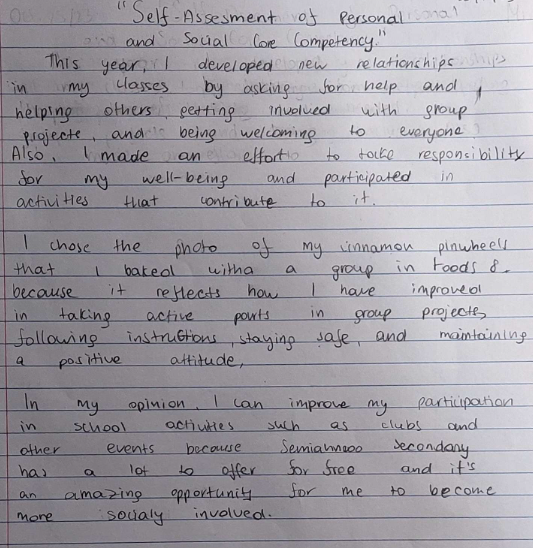 "Self-Assesment of Personal
and Social Core Competency."
This year, I developed new relationships
in my classes by asking for help and
helping others, getting involved with group
projects, and being welcoming to everyone
Also, I made an effort to take responsibility
for my well-being and participated in
activities that contribute to it.
I chose the photo of my cinnamon pinwheels
that I baked witha a group in Foods 8.
because it reflects how I have improved
in taking active parts in group projects,
following instructions, staying safe, and maintaining
a positive attitude,
In my opinion, I can improve my participation
in school activities such as clubs and
other events because Semiahmoo Secondary
has a lot to offer for free and it's
an amazing opportunity for me to become
more socialy involved.